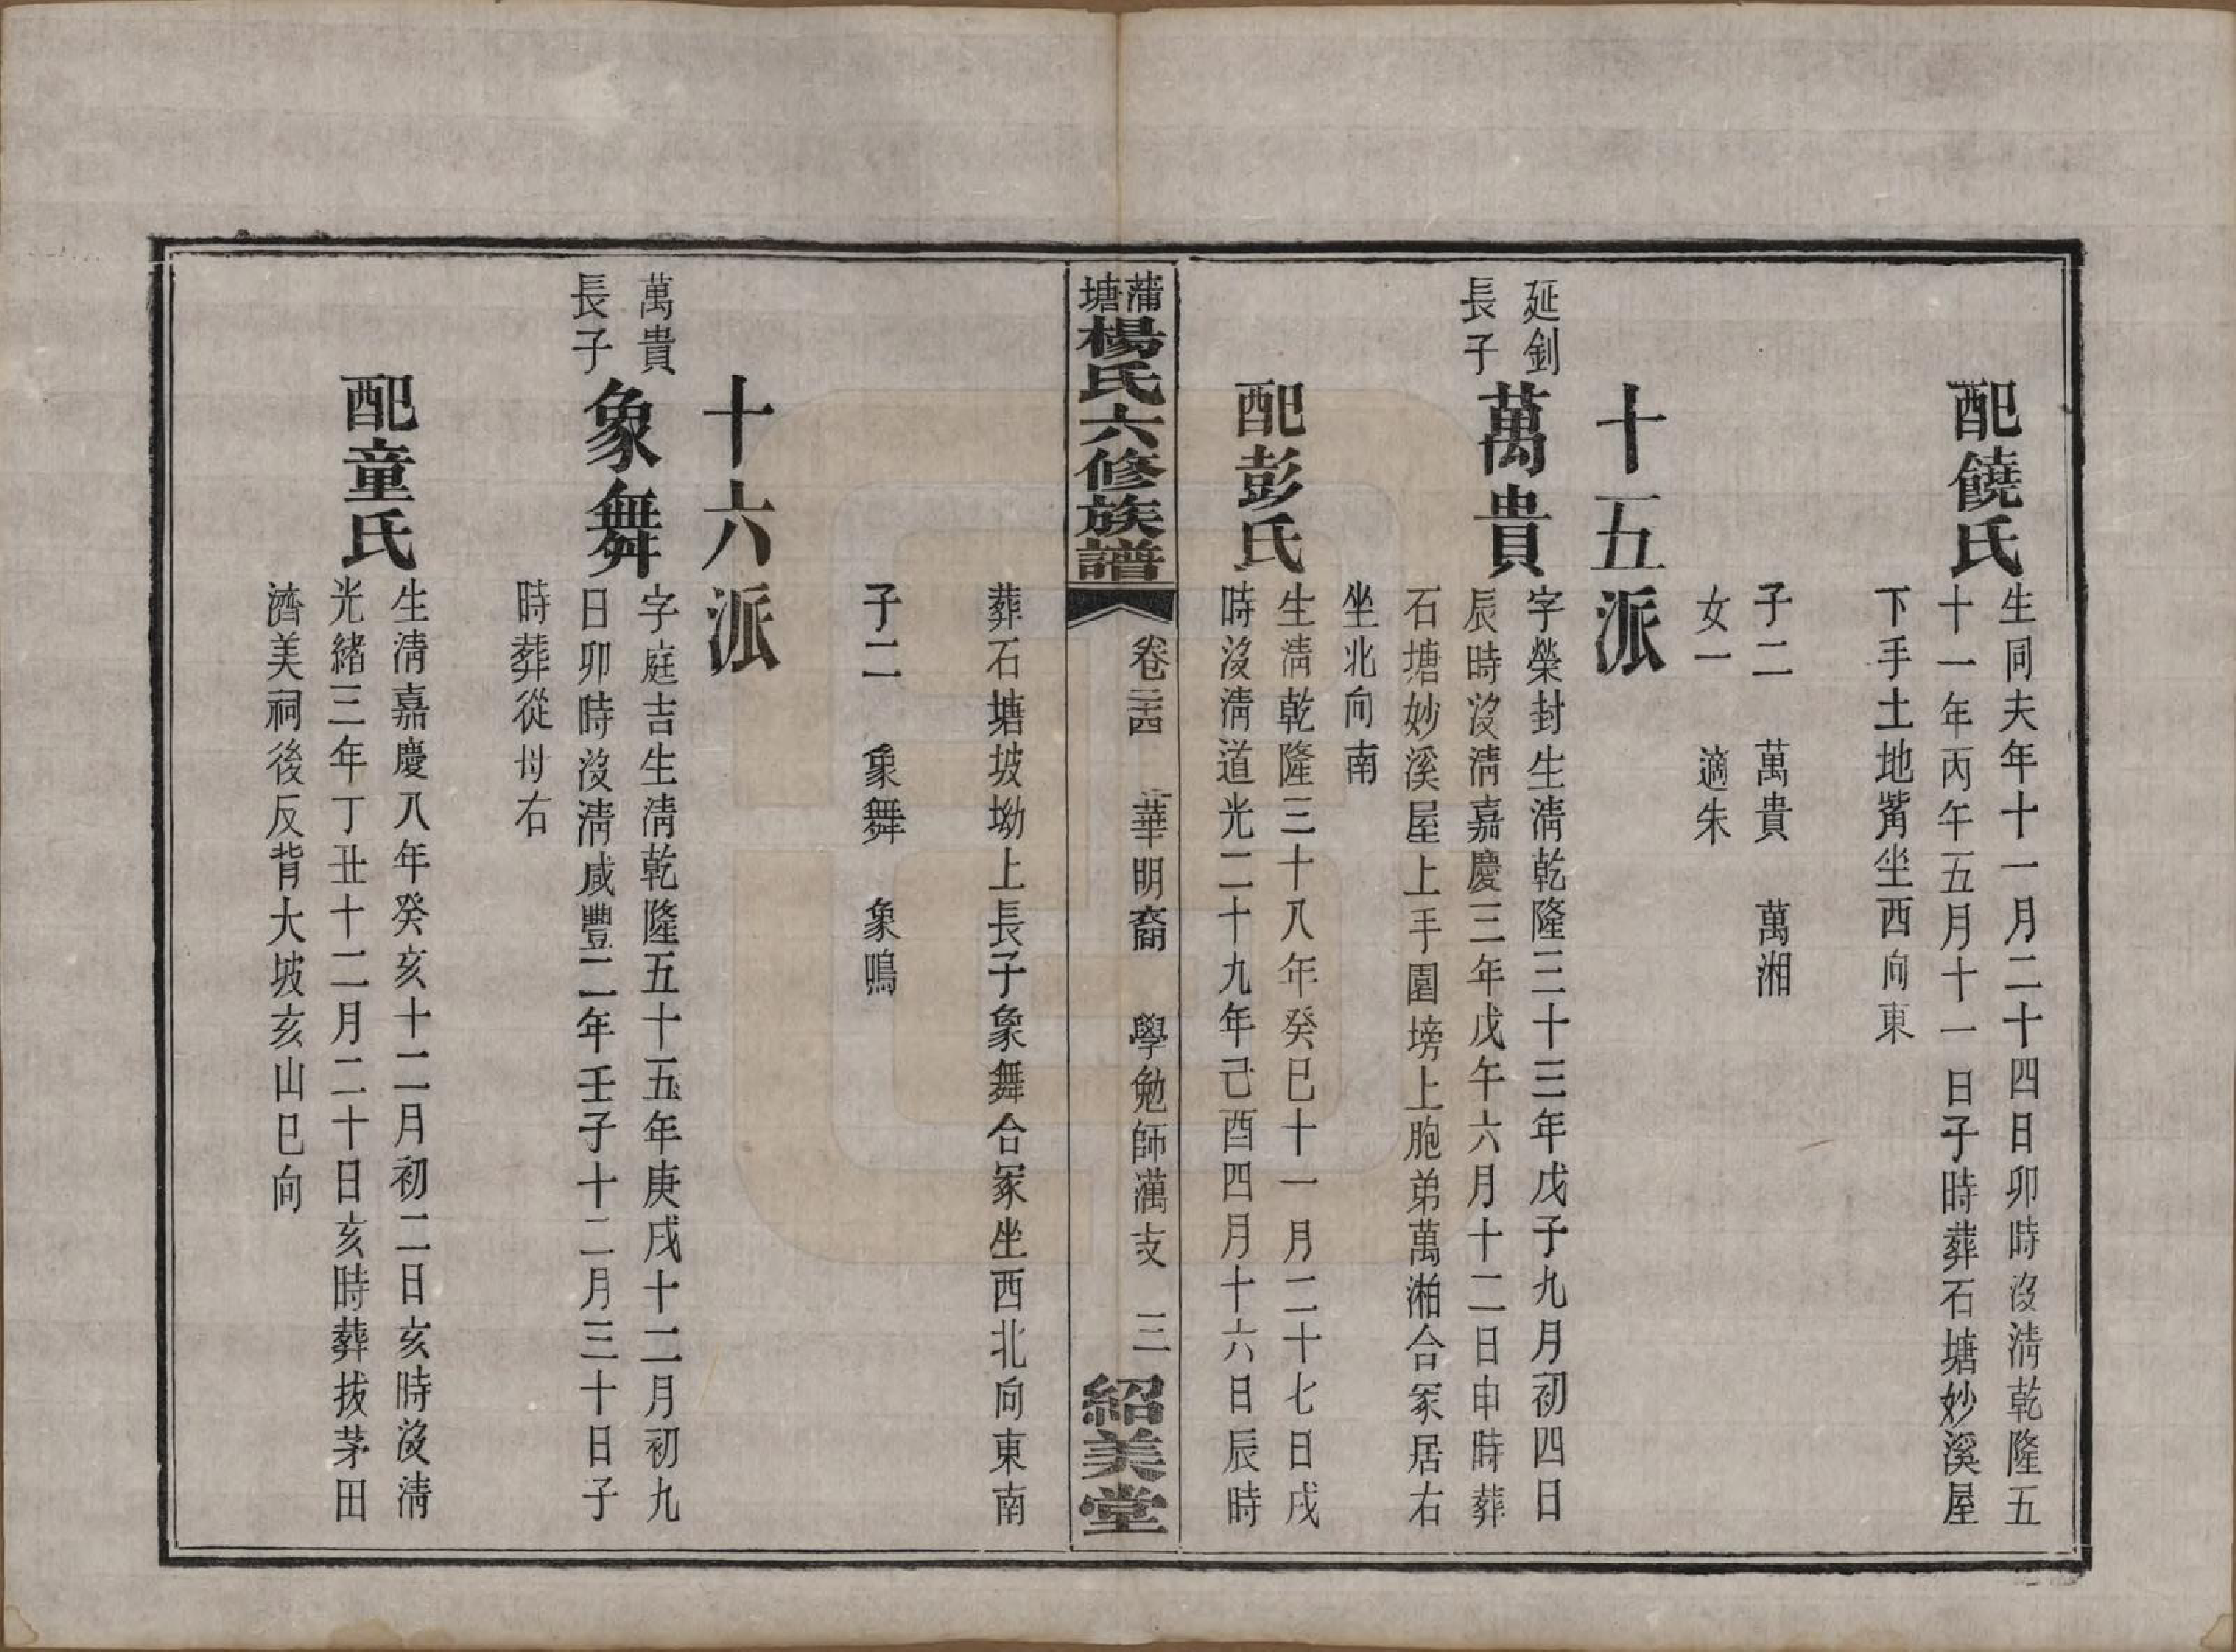 配饒氏
生同夫年十一月二十四日卯時沒淸乾隆五
十一年丙午五月十一日子時葬石塘妙溪屋
下手土地觜坐西向東
子二　萬貴　萬湘
女一　適朱
十五派
延釗
長子
萬貴
字榮封生淸乾隆三十三年戊子九月初四日
辰時沒淸嘉慶三年戊午六月十二日申時葬
石塘妙溪屋上手園塝上胞弟萬湘合冢居右
坐北向南
配彭氏
生淸乾隆三十八年癸巳十一月二十七日戌
時沒淸道光二十九年己酉四月十六日辰時
蒲塘楊氏六修族譜
卷三十四　華明裔　學勉師萬支　三
紹美堂
葬石塘坡坳上長子象舞合冢坐西北向東南
子二　象舞　象鳴
十六派
萬貴
長子
象舞
字庭吉生淸乾隆五十五年庚戌十二月初九
日卯時沒淸咸豐二年壬子十二月三十日子
時葬從母右
配童氏
生淸嘉慶八年癸亥十二月初二日亥時沒淸
光緒三年丁丑十二月二十日亥時葬拔茅田
濟美祠後反背大坡亥山巳向